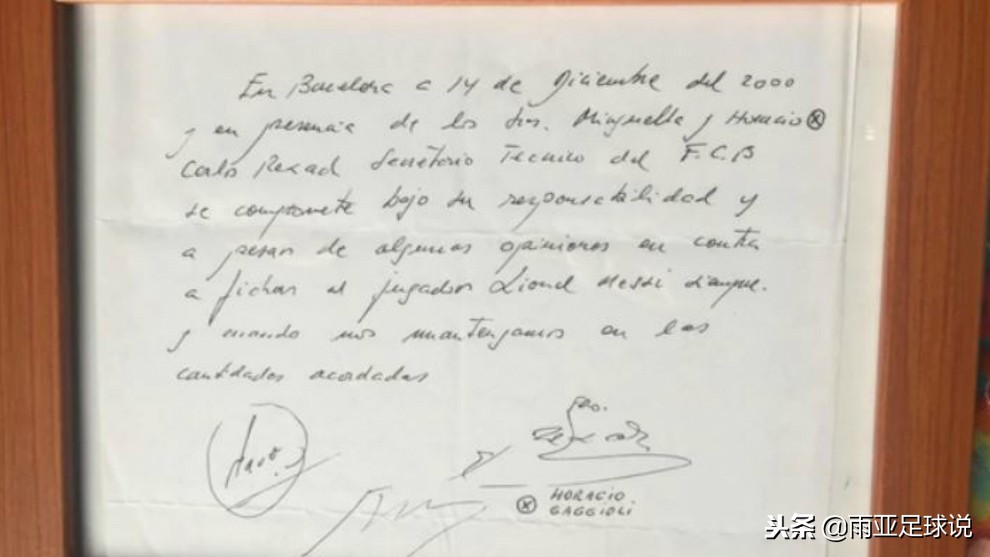 En Barcelona a 14 de Diciembre del 2000
y en presencia de los Srs. Minguella y Horacio ⓧ
Carlos Rexach Secretario Tecnico del F.C.B
se compromete bajo su responsabilidad y
a pesar de algunas opiniones en contra
a fichar al jugador Lionel Messi siempre.
y cuando nos mantengamos en las
cantidades acordadas
Fdo.
ⓧ HORACIO
GAGGIOLI
头条 @雨亚足球说